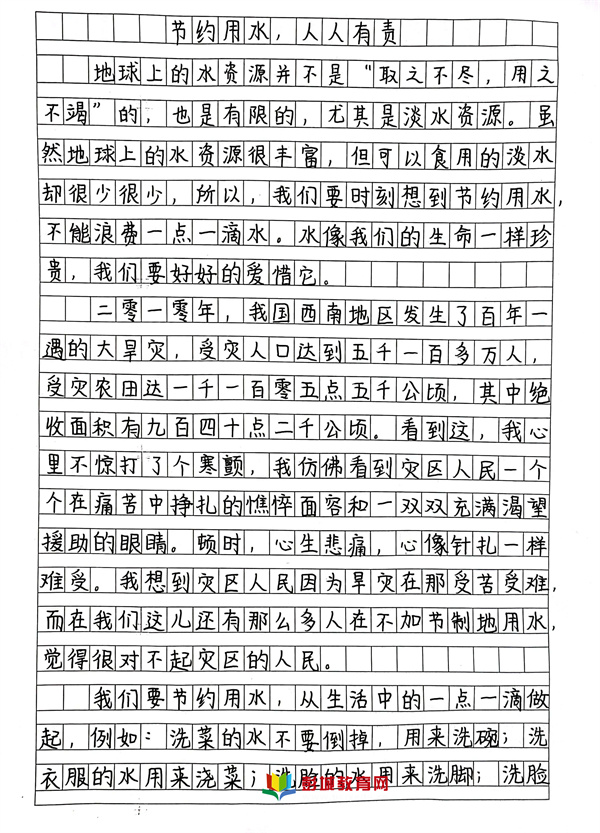 节约用水，人人有责
地球上的水资源并不是“取之不尽，用之
不竭”的，也是有限的，尤其是淡水资源。虽
然地球上的水资源很丰富，但可以食用的淡水
却很少很少，所以，我们要时刻想到节约用水，
不能浪费一点一滴水。水像我们的生命一样珍
贵，我们要好好的爱惜它。
二零一零年，我国西南地区发生了百年一
遇的大旱灾，受灾人口达到五千一百多万人，
受灾农田达一千一百零五点五千公顷，其中绝
收面积有九百四十点二千公顷。看到这，我心
里不惊打了个寒颤，我仿佛看到灾区人民一个
个在痛苦中挣扎的憔悴面容和一双双充满渴望
援助的眼睛。顿时，心生悲痛，心像针扎一样
难受。我想到灾区人民因为旱灾在那受苦受难，
而在我们这儿还有那么多人在不加节制地用水，
觉得很对不起灾区的人民。
我们要节约用水，从生活中的一点一滴做
起，例如：洗菜的水不要倒掉，用来洗碗；洗
衣服的水用来浇菜；洗脸的水用来洗脚；洗脸
教育网